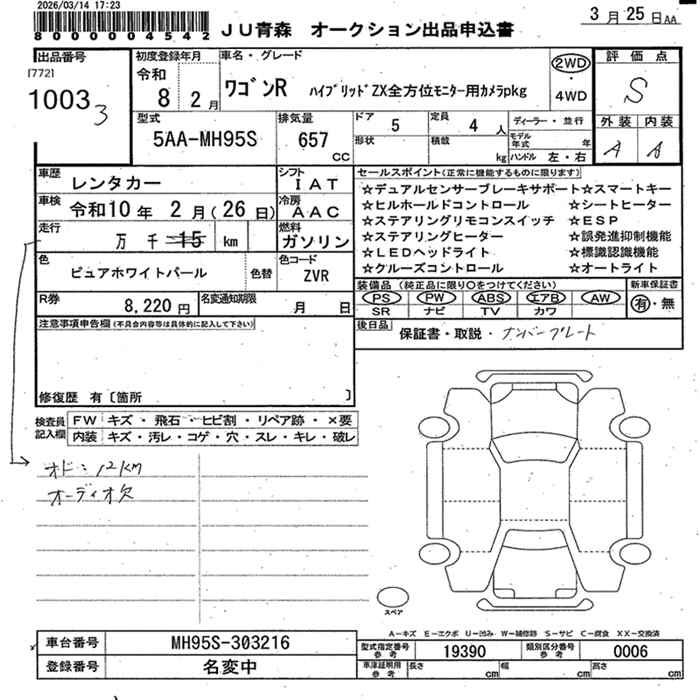 2026/03/14 17:23
800004542
JU青森 オークション出品申込書
3月25日AA
出品番号
[772]
1003 3
初度登録年月
令和
8 2月
車名・グレード
ワゴンR ハイブリッドZX全方位モニター用カメラpkg
2WD
・
4WD
評価点
S
外装 内装
A A
型式
5AA-MH95S
排気量
657
CC
ドア
5
定員
4 人
形状
積載
kg
ディーラー・並行
モデル年式 年
ハンドル 左・右
車歴
レンタカー
シフト
IAT
車検
令和10年 2月(26日)
冷房
AAC
走行
万 千 15 km
燃料
ガソリン
色
ピュアホワイトパール
色替
色コード
ZVR
R券
8,220円
名変通知期限
月 日
セールスポイント(正常に機能するものに限ります)
☆デュアルセンサーブレーキサポート☆スマートキー
☆ヒルホールドコントロール ☆シートヒーター
☆ステアリングリモコンスイッチ ☆ESP
☆ステアリングヒーター ☆誤発進抑制機能
☆LEDヘッドライト ☆標識認識機能
☆クルーズコントロール ☆オートライト
装備品(純正品に限り〇をつけてください)
PS PW ABS エアB AW
SR ナビ TV カワ
新車保証書
有・無
後日品
保証書・取説・ナンバープレート
注意事項申告欄(不具合内容等は具体的に記入して下さい)
修復歴 有〔箇所 〕
検査員記入欄
FW キズ・飛石・ヒビ割・リペア跡・×要
内装 キズ・汚レ・コゲ・穴・スレ・キレ・破レ
オド:12km
オーディオ欠
スペア
A-キズ E-エクボ U-凹み W-補修跡 S-サビ C-腐食 XX-交換済
車台番号
MH95S-303216
登録番号
名変中
型式指定番号
参考
19390
類別区分番号
参考
0006
車庫証明用
参考
長さ cm
幅 cm
高さ cm